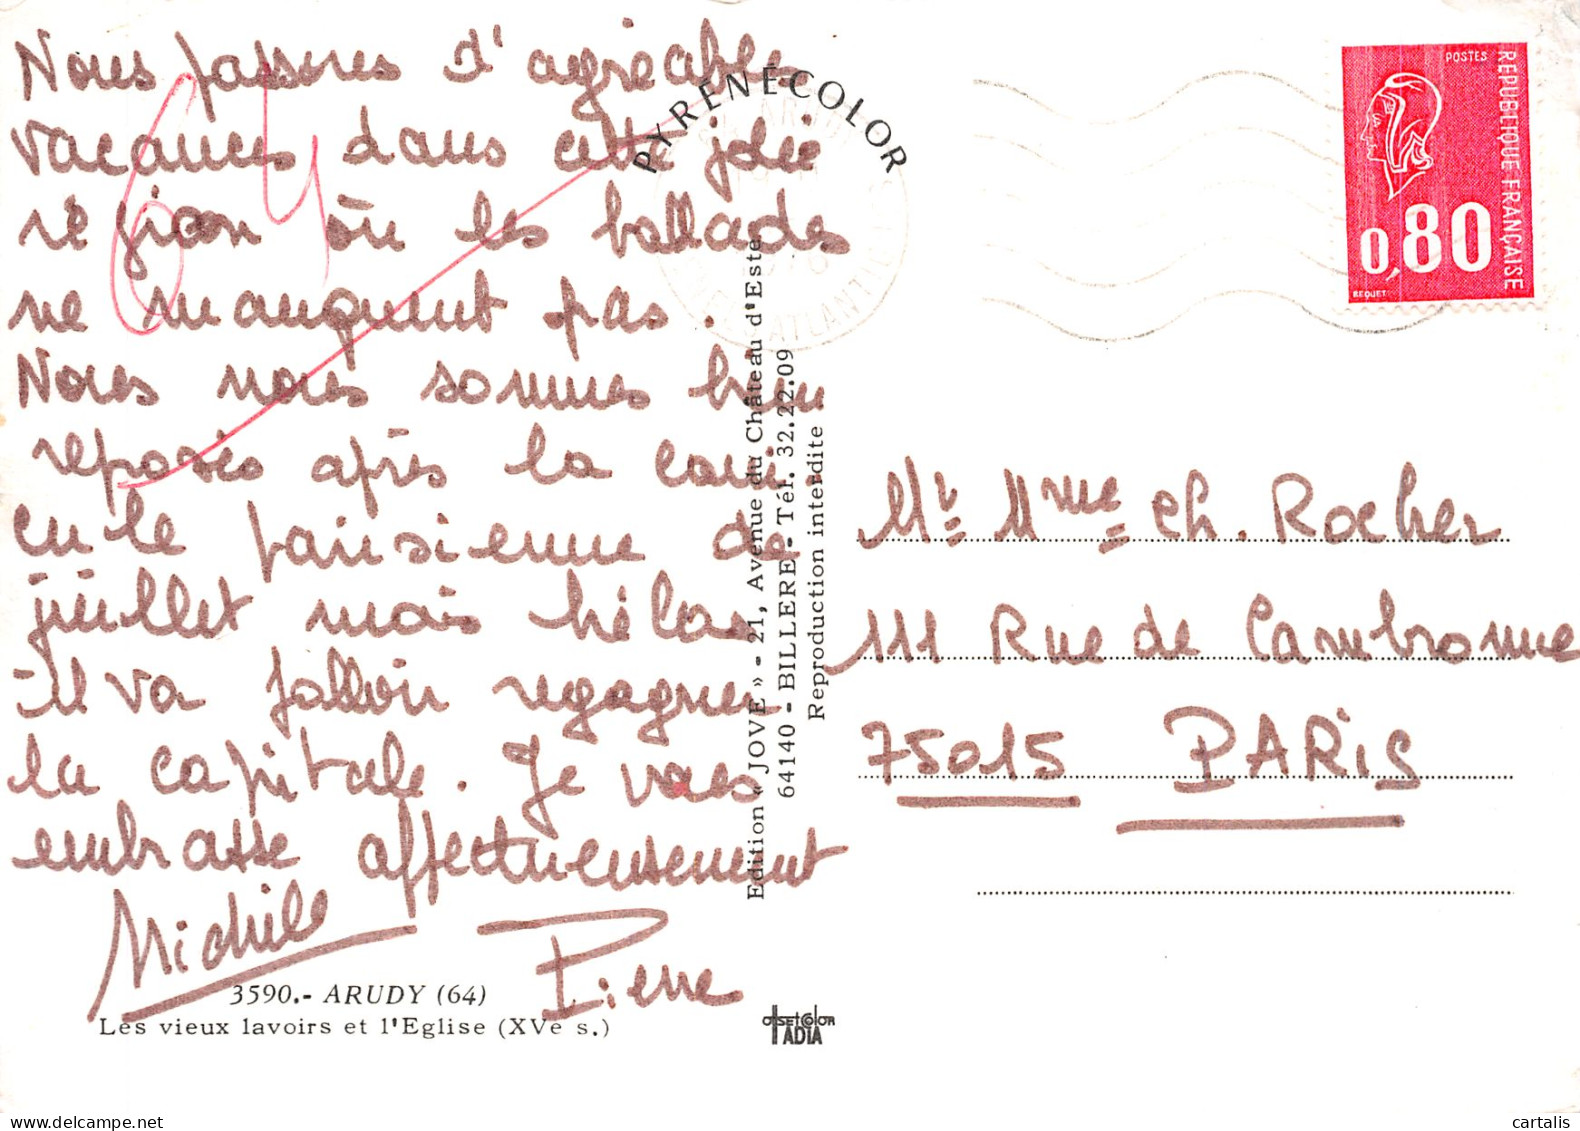 Nous passons d'agréables
vacances dans cette jolie
région où les ballades
ne manquent pas.
Nous nous sommes bien
reposés après la cani-
cule parisienne de
juillet mais hélas
il va falloir regagner
la capitale. Je vous
embrasse affectueusement
Michèle
Pierre
64
3590.- ARUDY (64)
Les vieux lavoirs et l'Eglise (XVe s.)
PYRÉNÉCOLOR
Edition « JOVE » - 21, Avenue du Château d'Este
64140 - BILLERE - Tél. 32.22.09
Reproduction interdite
OFFSETCOLOR
IADIA
POSTES
REPUBLIQUE FRANÇAISE
0,80
BEQUET
ATLANT
Mr Mme Ch. Rocher
111 Rue de Cambronne
75015 PARIS
cartalis